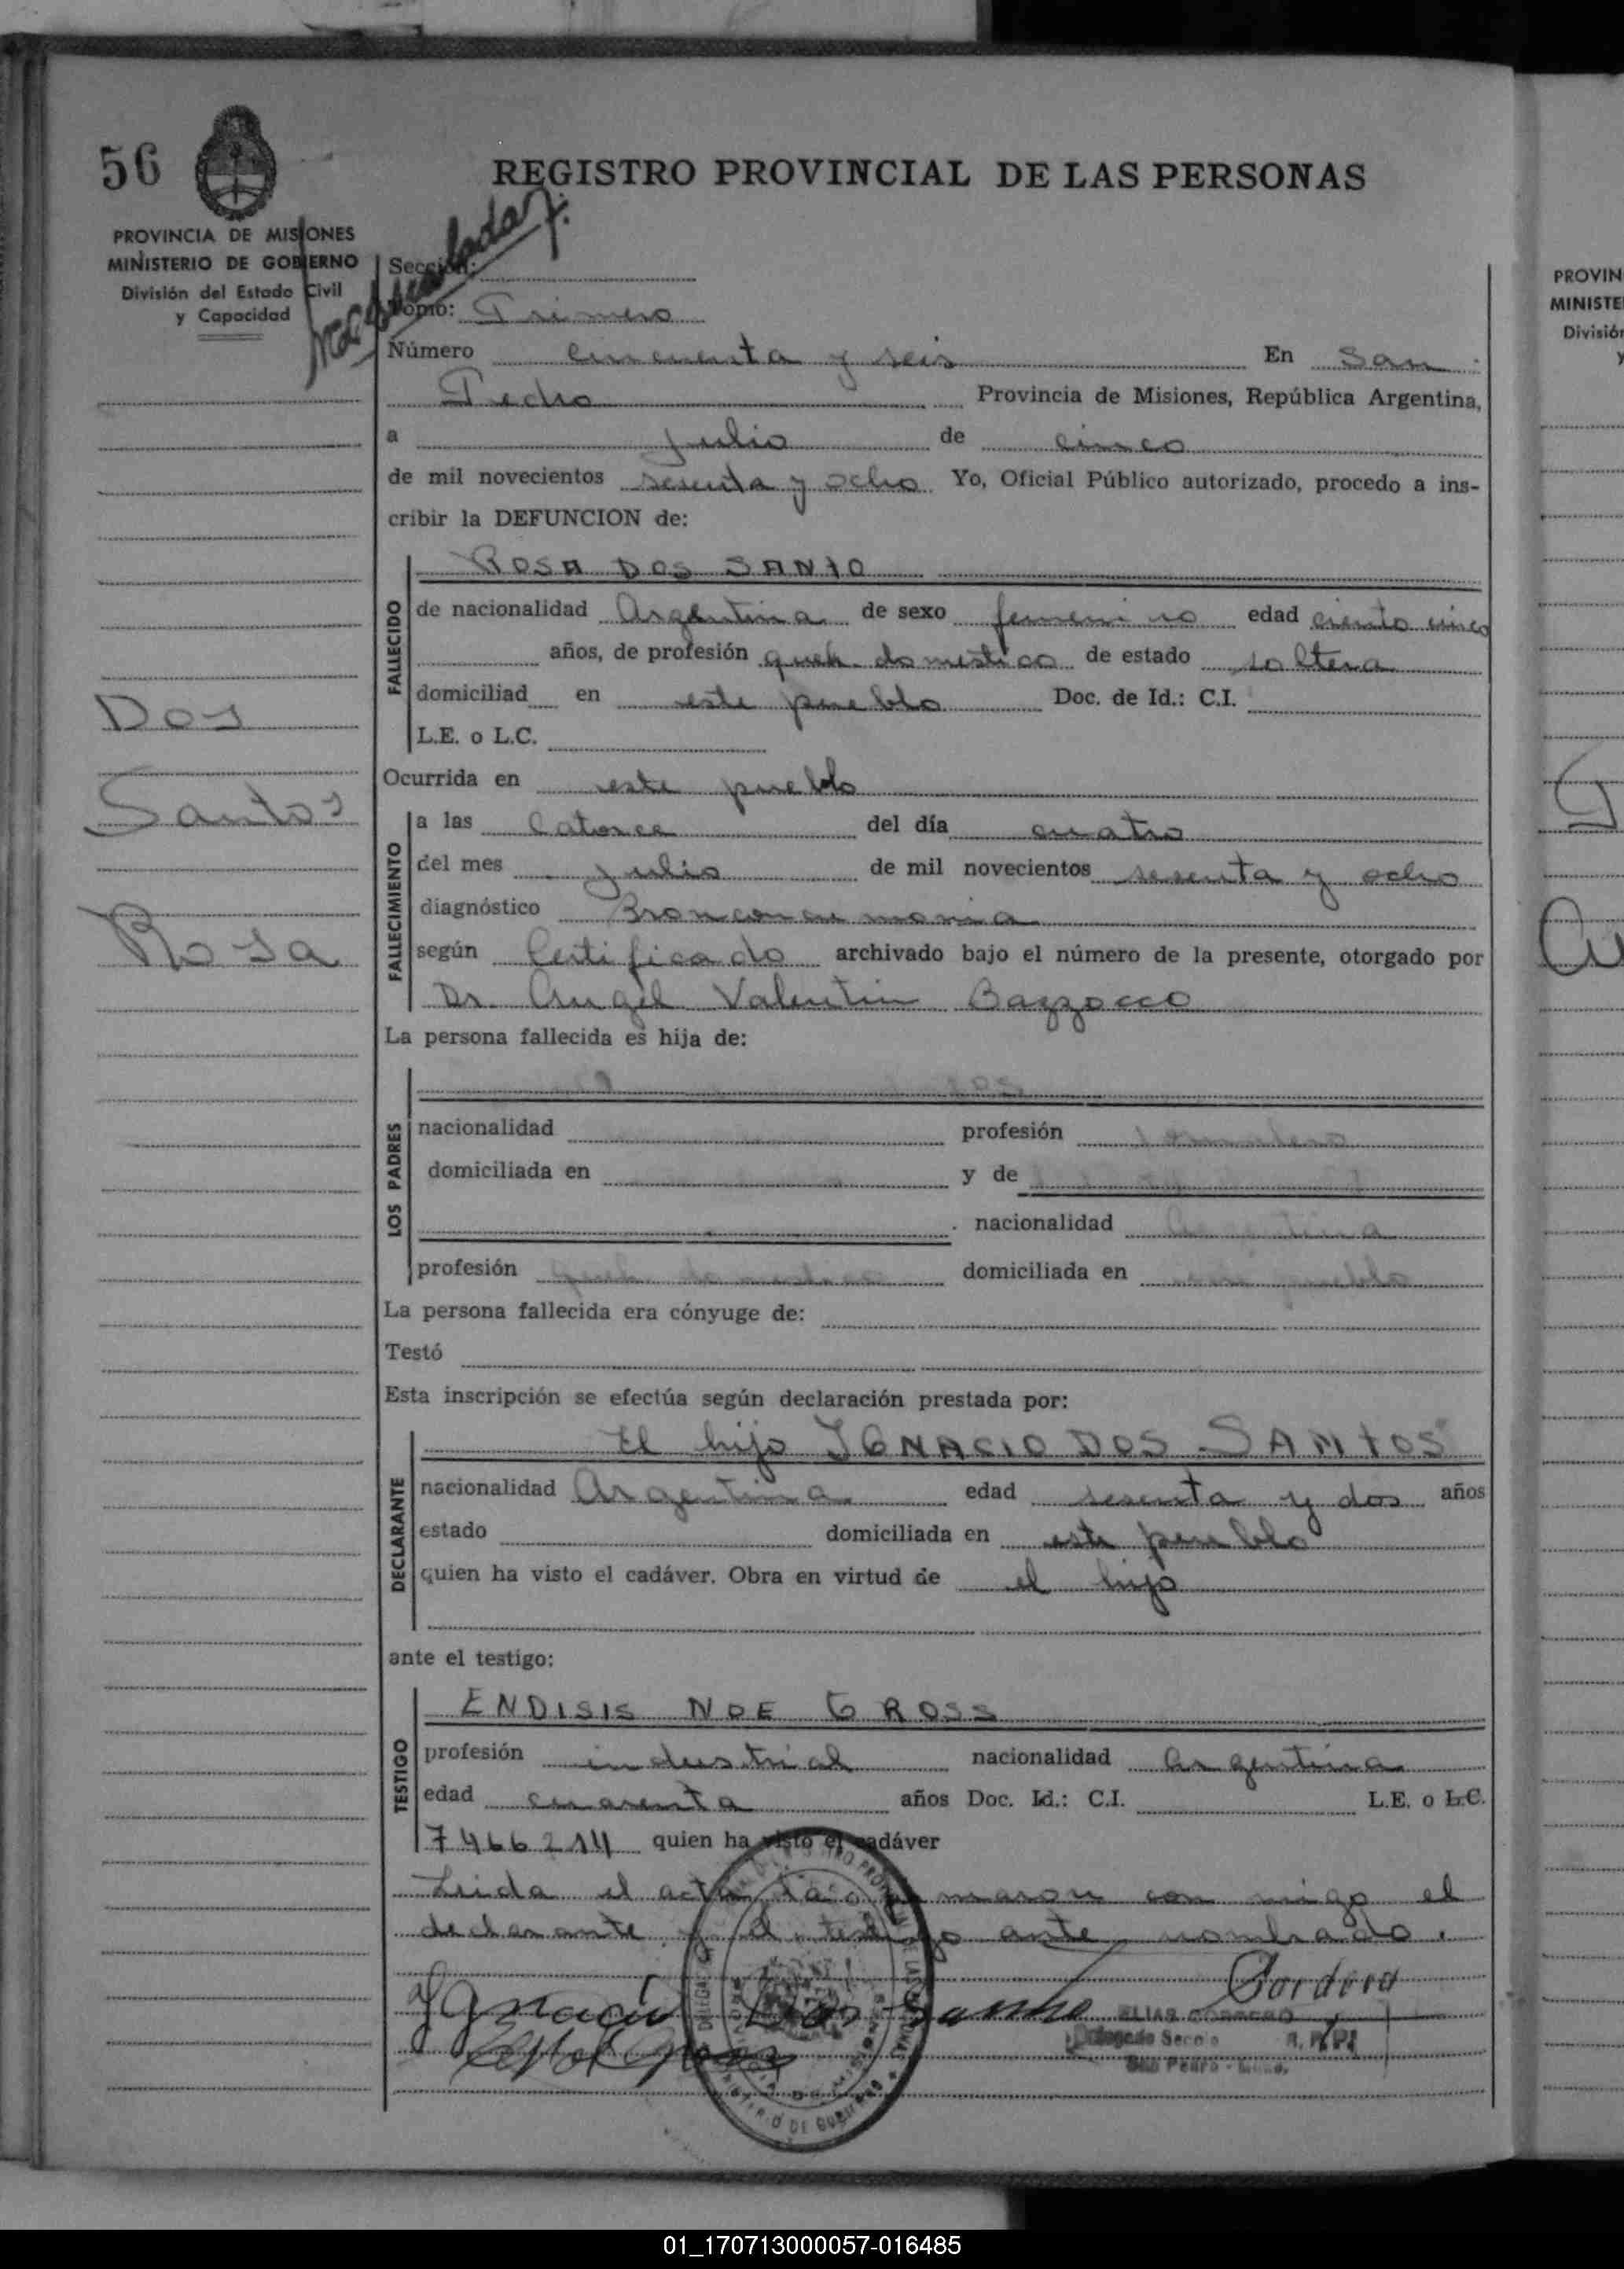 56
REGISTRO PROVINCIAL DE LAS PERSONAS
PROVINCIA DE MISIONES
MINISTERIO DE GOBIERNO
División del Estado Civil
y Capacidad
Sección:
Tomo: Primero
Número cincuenta y seis En San
Pedro Provincia de Misiones, República Argentina,
a julio de cinco
de mil novecientos sesenta y ocho Yo, Oficial Público autorizado, procedo a ins-
cribir la DEFUNCION de:
FALLECIDO
ROSA DOS SANTO
de nacionalidad Argentina de sexo femenino edad ciento cinco
años, de profesión queh. domestico de estado soltera
domiciliad en este pueblo Doc. de Id.: C.I.
L.E. o L.C.
Dos
Santos
Rosa
Ocurrida en este pueblo
FALLECIMIENTO
a las Catorce del día cuatro
del mes julio de mil novecientos sesenta y ocho
diagnóstico Bronconeumonia
según Certificado archivado bajo el número de la presente, otorgado por
Dr. Angel Valentin Bazzocco
La persona fallecida es hija de:
LOS PADRES
nacionalidad profesión
domiciliada en y de
nacionalidad Argentina
profesión queh. domestico domiciliada en pueblo
La persona fallecida era cónyuge de:
Testó
Esta inscripción se efectúa según declaración prestada por:
DECLARANTE
El hijo IGNACIO DOS SANTOS
nacionalidad Argentina edad sesenta y dos años
estado domiciliada en este pueblo
quien ha visto el cadáver. Obra en virtud de el hijo
ante el testigo:
TESTIGO
ENDISIS NOE GROSS
profesión industrial nacionalidad Argentina
edad cuarenta años Doc. Id.: C.I. L.E. o L.C.
7466214 quien ha visto el cadáver
Leida el acta maron con migo el
declarante y el testigo ante nombrado.
Ignacio Dos Santo
Cordero
ELIAS CORDERO
Delegado Secc
San Pedro
PROVIN
MINISTE
División
y
01_170713000057-016485